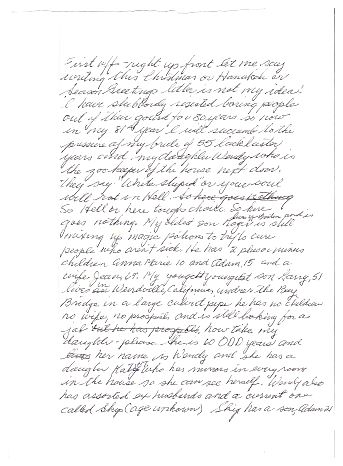 First off - right up front let me say
writing this Christmas or Hanukah or
Season Greetings letter is not my idea!
I have stubbornly resisted boring people
out of their gourd for 80 years so now
in my 81st year I will succumb to the
pressure of my bride of 55 lackluster
years and my daughter Wendy who is
the zoo keeper of the house next door.
They say "Write stupid or your soul
will rot in Hell
So Hell or here tough choice So here
goes nothing. My oldest son is still
mixing up magic potions to try to cure
people who aren't sick He has 2 minus
children Anna Marie 10 and Adam, 15 and a
wife Jean, 69. My youngest son Harry, 51
lives in California, under the Bay
Bridge in a large culvert pipe he has no children
no wife, no prospects and is still looking for a
job but he has prospects now take my
daughter - please. She is 10,000 years and
her name is Wendy and she has a
daughter who has mirrors in every room
in the house so she can see herself. Wendy also
has assorted ex husbands and a current one
called Skip (age unknown) Skip has a son, Adam 21